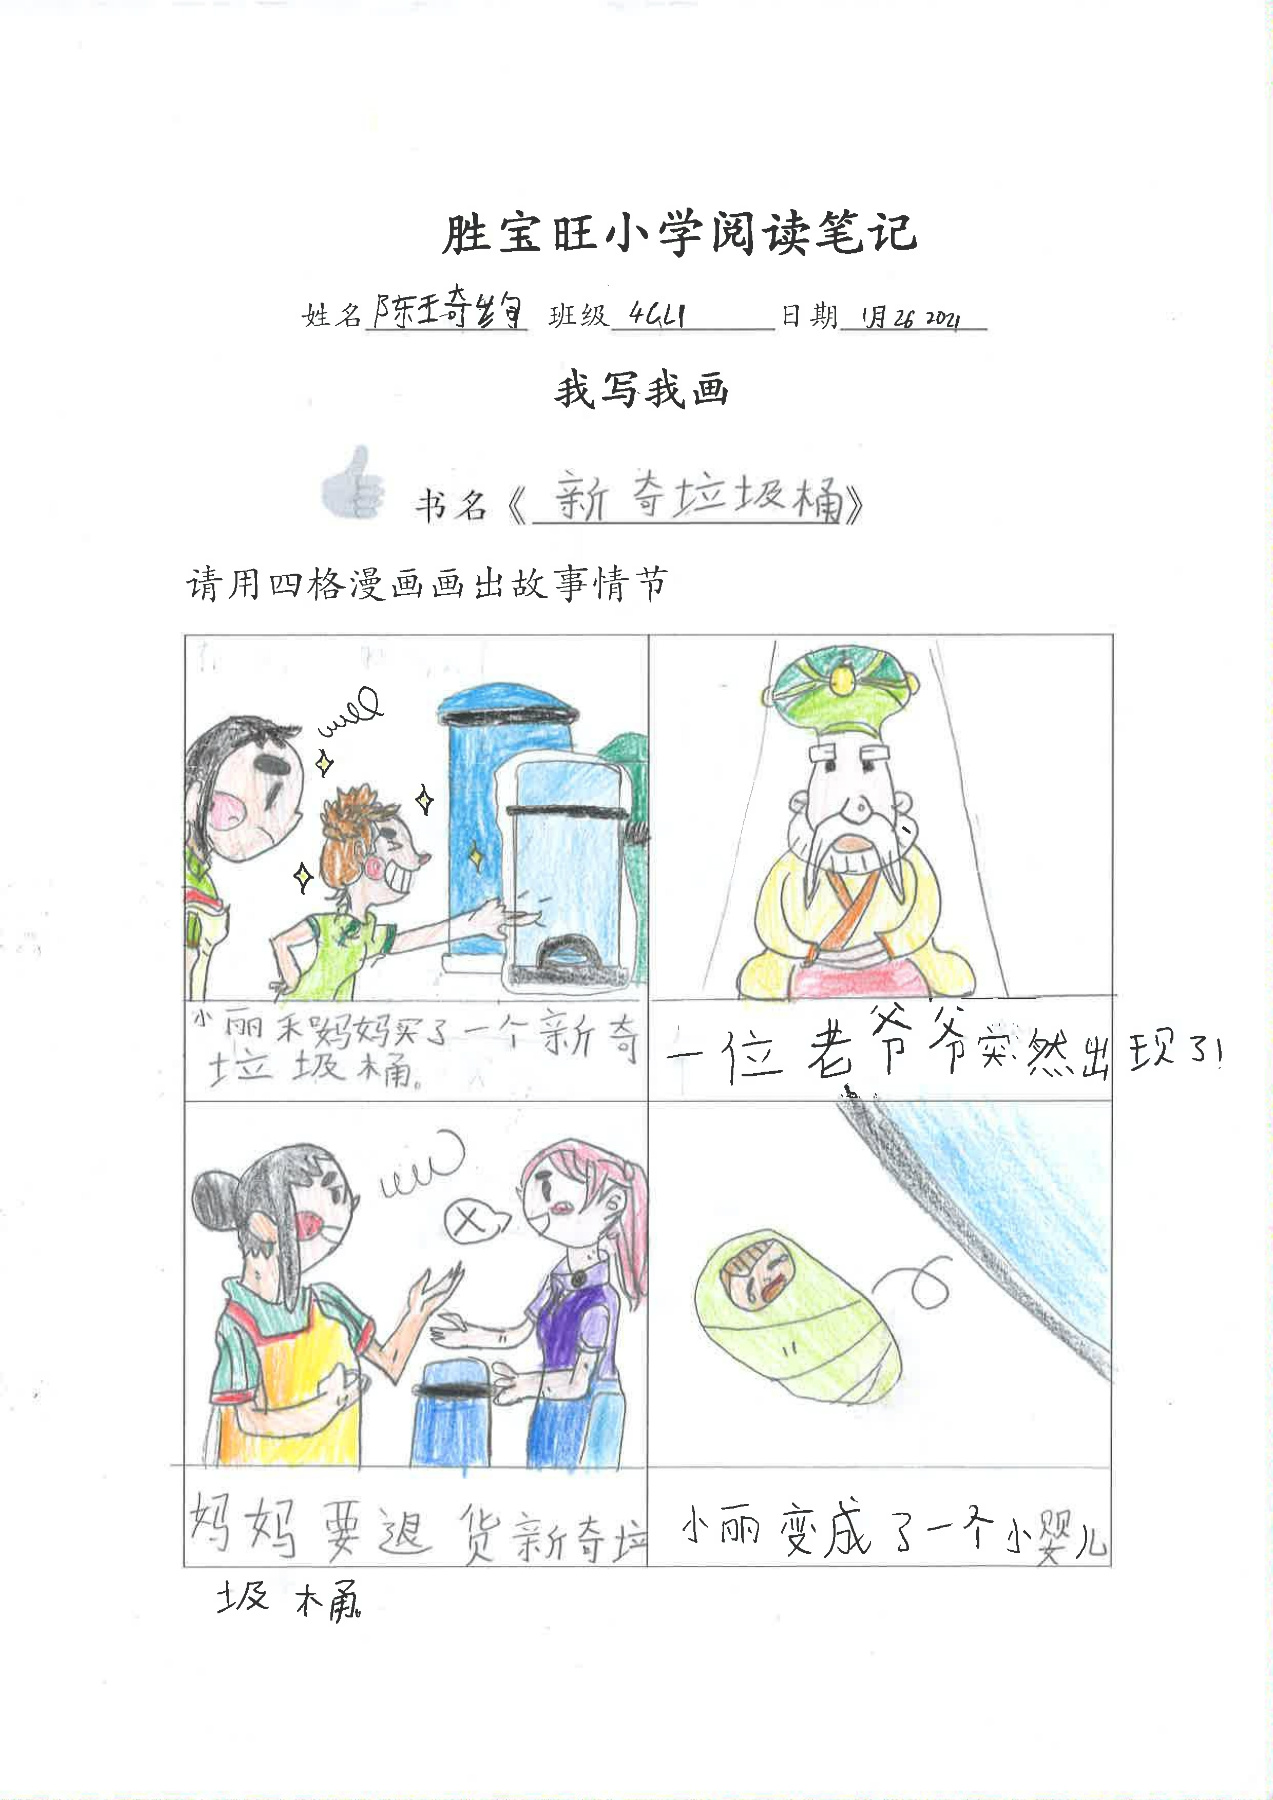 胜宝旺小学阅读笔记
姓名 陈王奇 班级 4GL1 日期 1月26 2021
我写我画
书名《新奇垃圾桶》
请用四格漫画画出故事情节
小丽和妈妈买了一个新奇
垃圾桶。
一位老爷爷突然出现了!
X
妈妈要退货新奇垃
圾桶。
小丽变成了一个小婴儿